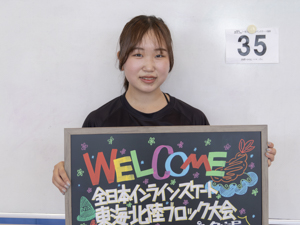 35
WELCOME
全日本インラインスケート
東海北陸ブロック大会